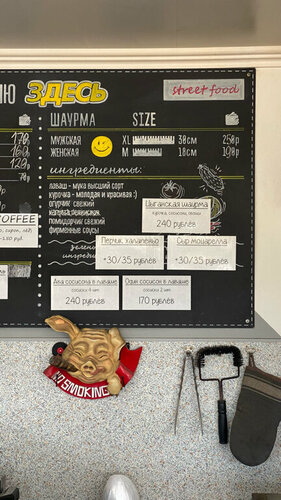 ЗДЕСЬ
street food
ШАУРМА SIZE
МУЖСКАЯ XL 30см 250р
ЖЕНСКАЯ M 18см 190р
ингредиенты:
лаваш - мука высший сорт
курочка - молодая и красивая :)
огурчик свежий
помидорчик свежий
фирменные соусы
Цыганская шаурма
курочка, сосиски, овощи
240 рублей
170р
160р
120р
COFFEE
Перчик халапеньо
+30/35 рублей
Сыр моцарелла
+30/35 рублей
Два сосисона в лаваше
сосиски 4 шт.
240 рублёв
Один сосисон в лаваше
сосиски 2 шт.
170 рублей
NO SMOKING